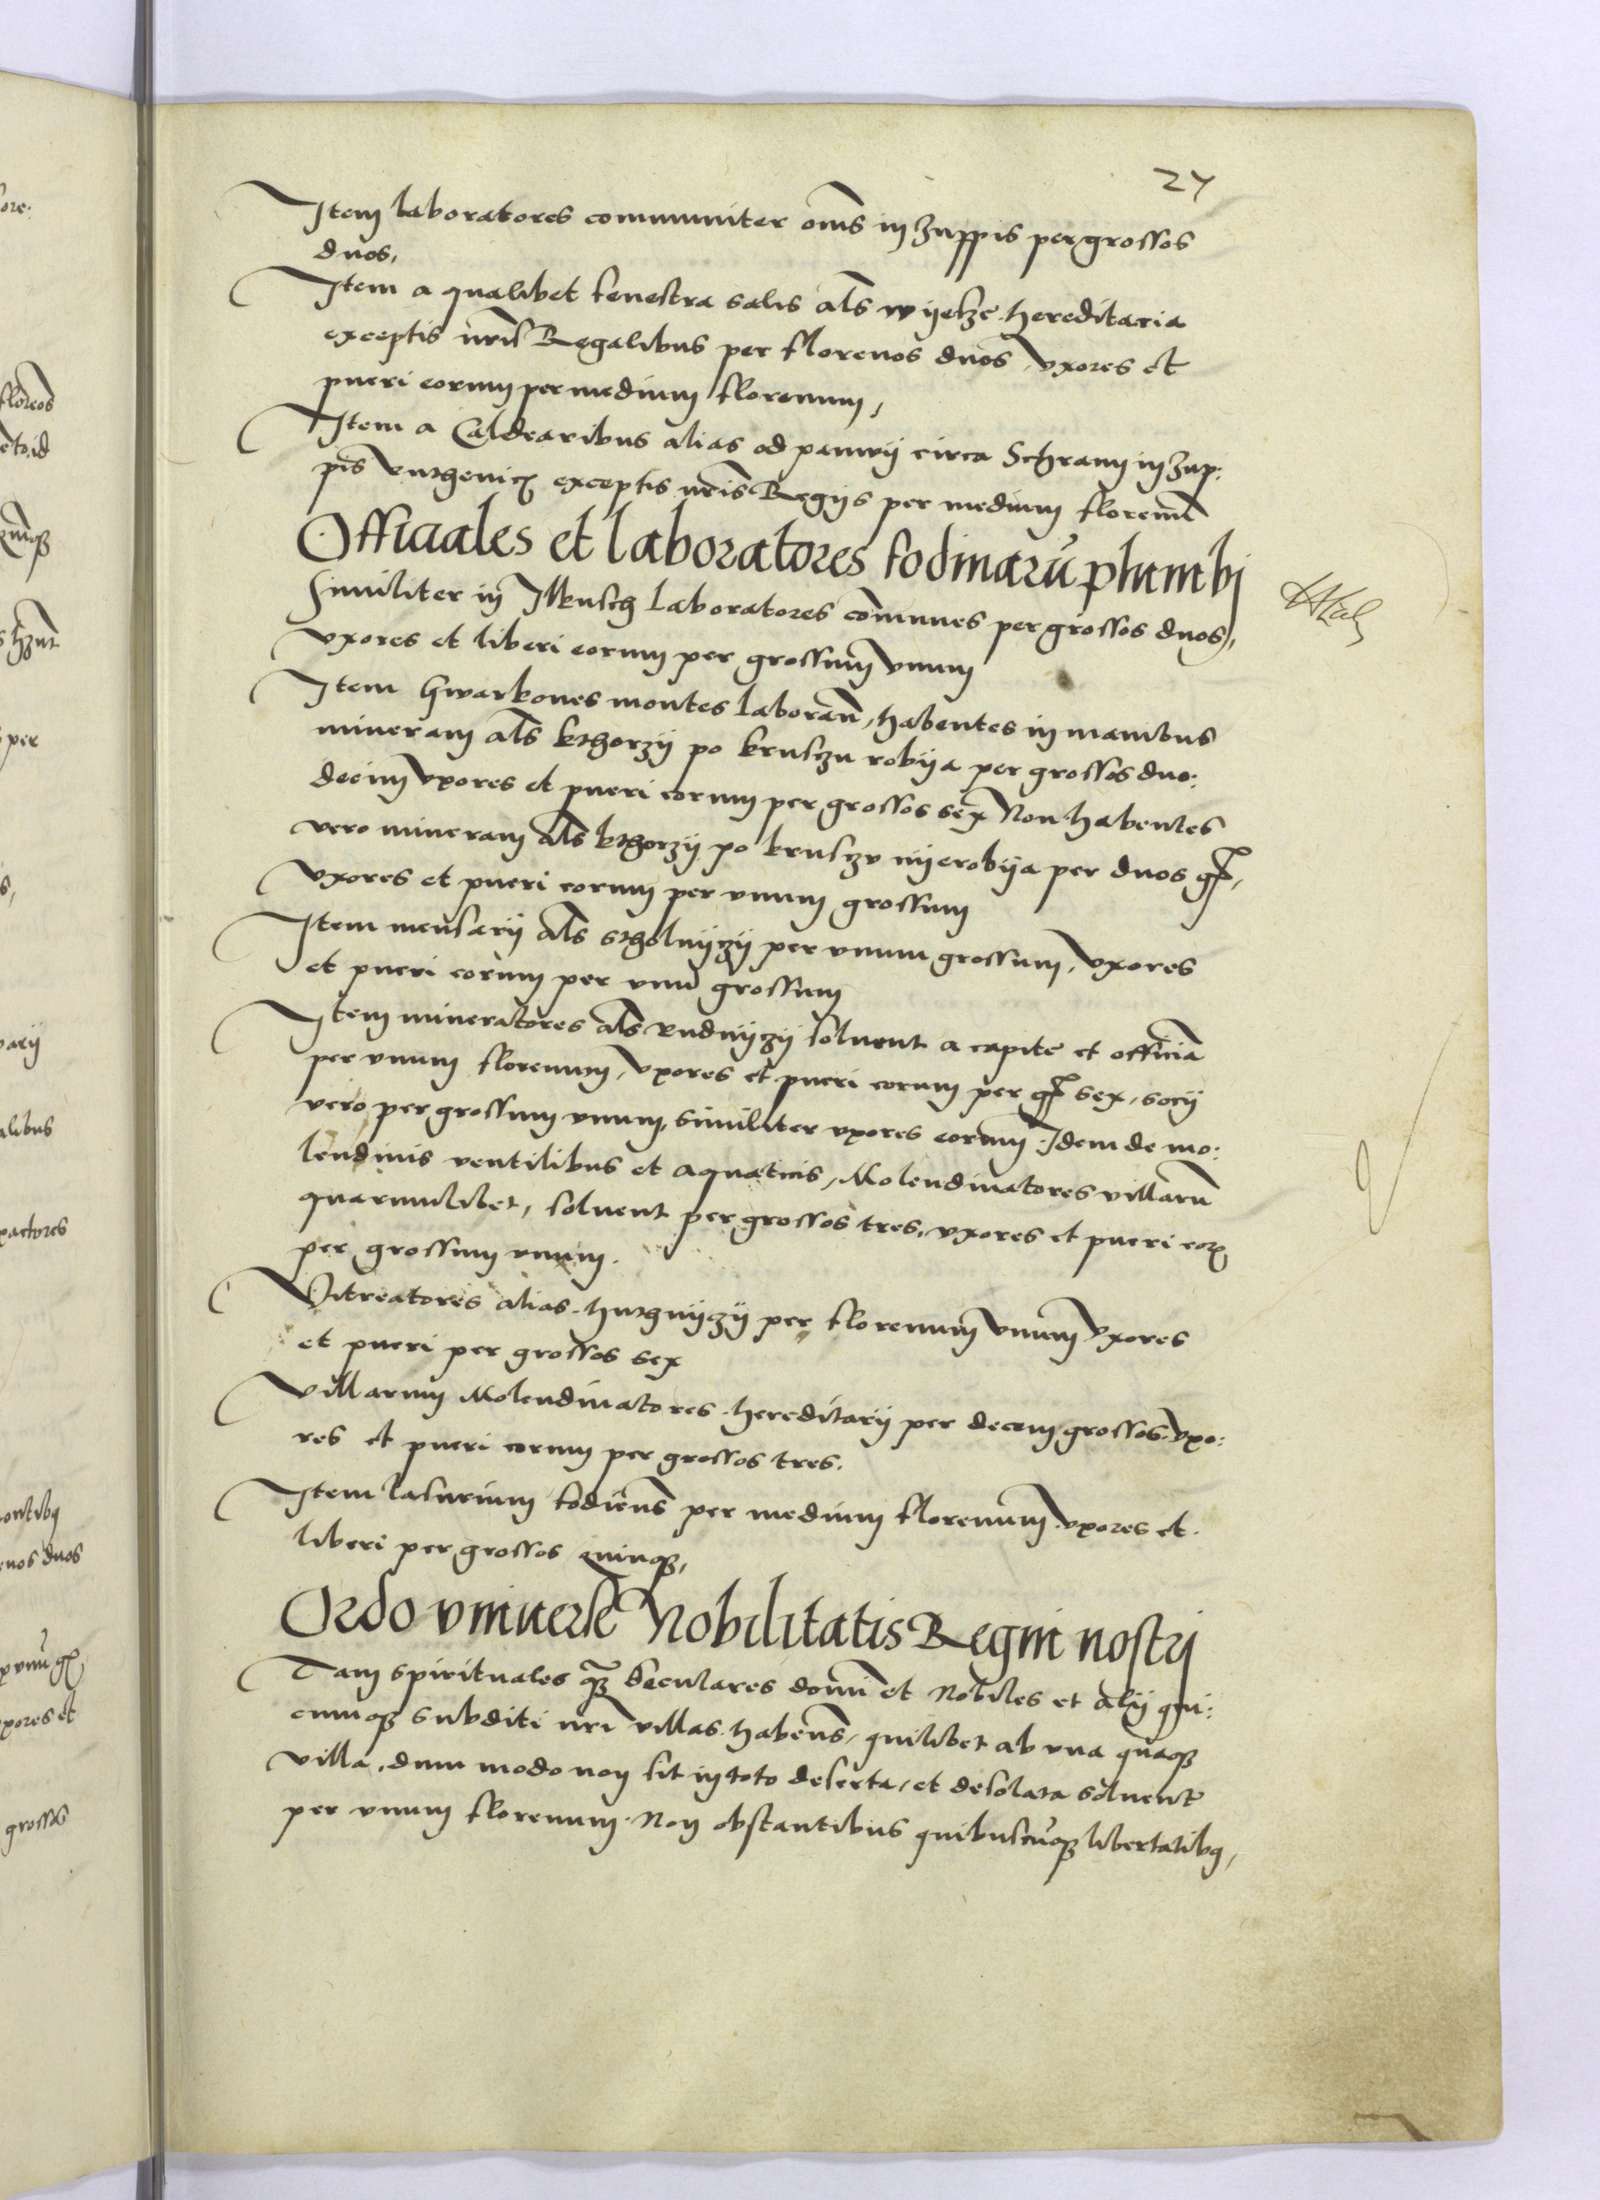 27
Item laboratores communiter om̄s in Zuppis per grossos
duos,
Item a qualibet fenestra salis als̄ wijelże hereditaria
exceptis nr̄is Regalibus per florenos duos, vxores et
pueri eorum per medium florenum,
Item a Caldearibus alias od panwij circa Schram in Zup:
pis exceptis nr̄is Regijs per medium florenū
Officiales et laboratores fodinarū plumbi
Similiter in Ilkusch laboratores cōmunes per grossos duos,
vxores et liberi eorum per grossum vnum
Item Gwarkones montes laboran̄, habentes in manibus
mineram als̄ kthorzij po kruszu robija per grossos duo:
decim vxores et pueri eorum per grossos sex Non habentes
vero mineram als̄ kthorzij po kruszv nijerobija per duos gr̄,
vxores et pueri eorum per vnum grossum
Item mensarij als̄ stholnijczij per vnum grossum, vxores
et pueri eorum per vnū grossum
Item mineratores als̄ Rudnijczij soluent a capite et officiā
per vnum florenum, vxores et pueri eorum per gr̄ sex, socij
vero per grossum vnum, similiter vxores eorum. Idem de mo:
lendinis ventilibus et aquaticis, Molendinatores villarū
quarumlibet, soluent per grossos tres, vxores et pueri eoꝝ
per grossum vnum.
Vitreatores alias huthnijczij per florenum vnum vxores
et pueri per grossos sex
Villarum Molendinatores hereditarij per decem grossos. vxo:
res et pueri eorum per grossos tres.
Item lasurium fodien̄s per medium florenum. vxores et
liberi per grossos quinqꝫ,
Ordo vniuerse Nobilitatis Regni nostri
Tam spirituales qꝫ̄ seculares domī et Nobiles et alij qui:
cumqꝫ subditi nr̄i villas haben̄s, quilibet ab vna quaqꝫ
villa, dum modo non sit in toto deserta, et desolata soluent
per vnum florenum. Non obstantibus quibuscūqꝫ libertatibꝫ,